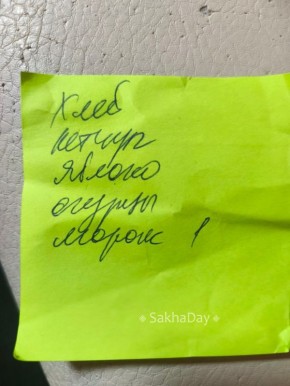 Хлеб
кетчуп
Яблоко
огурцы
SakhaDay